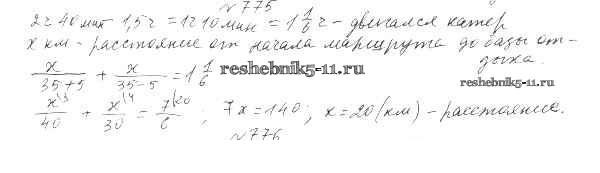 №775
2ч 40мин 1,5ч = 1ч 10мин = 1 1/6 ч - двигался катер
x км - расстояние от начала маршрута до базы от-
дыха.
x/(35+5) + x/(35-5) = 1 1/6
reshebnik5-11.ru
reshebnik5-11.ru
x\3/40 + x\4/30 = 7\20/6 ; 7x=140; x=20(км) - расстояние.
№776